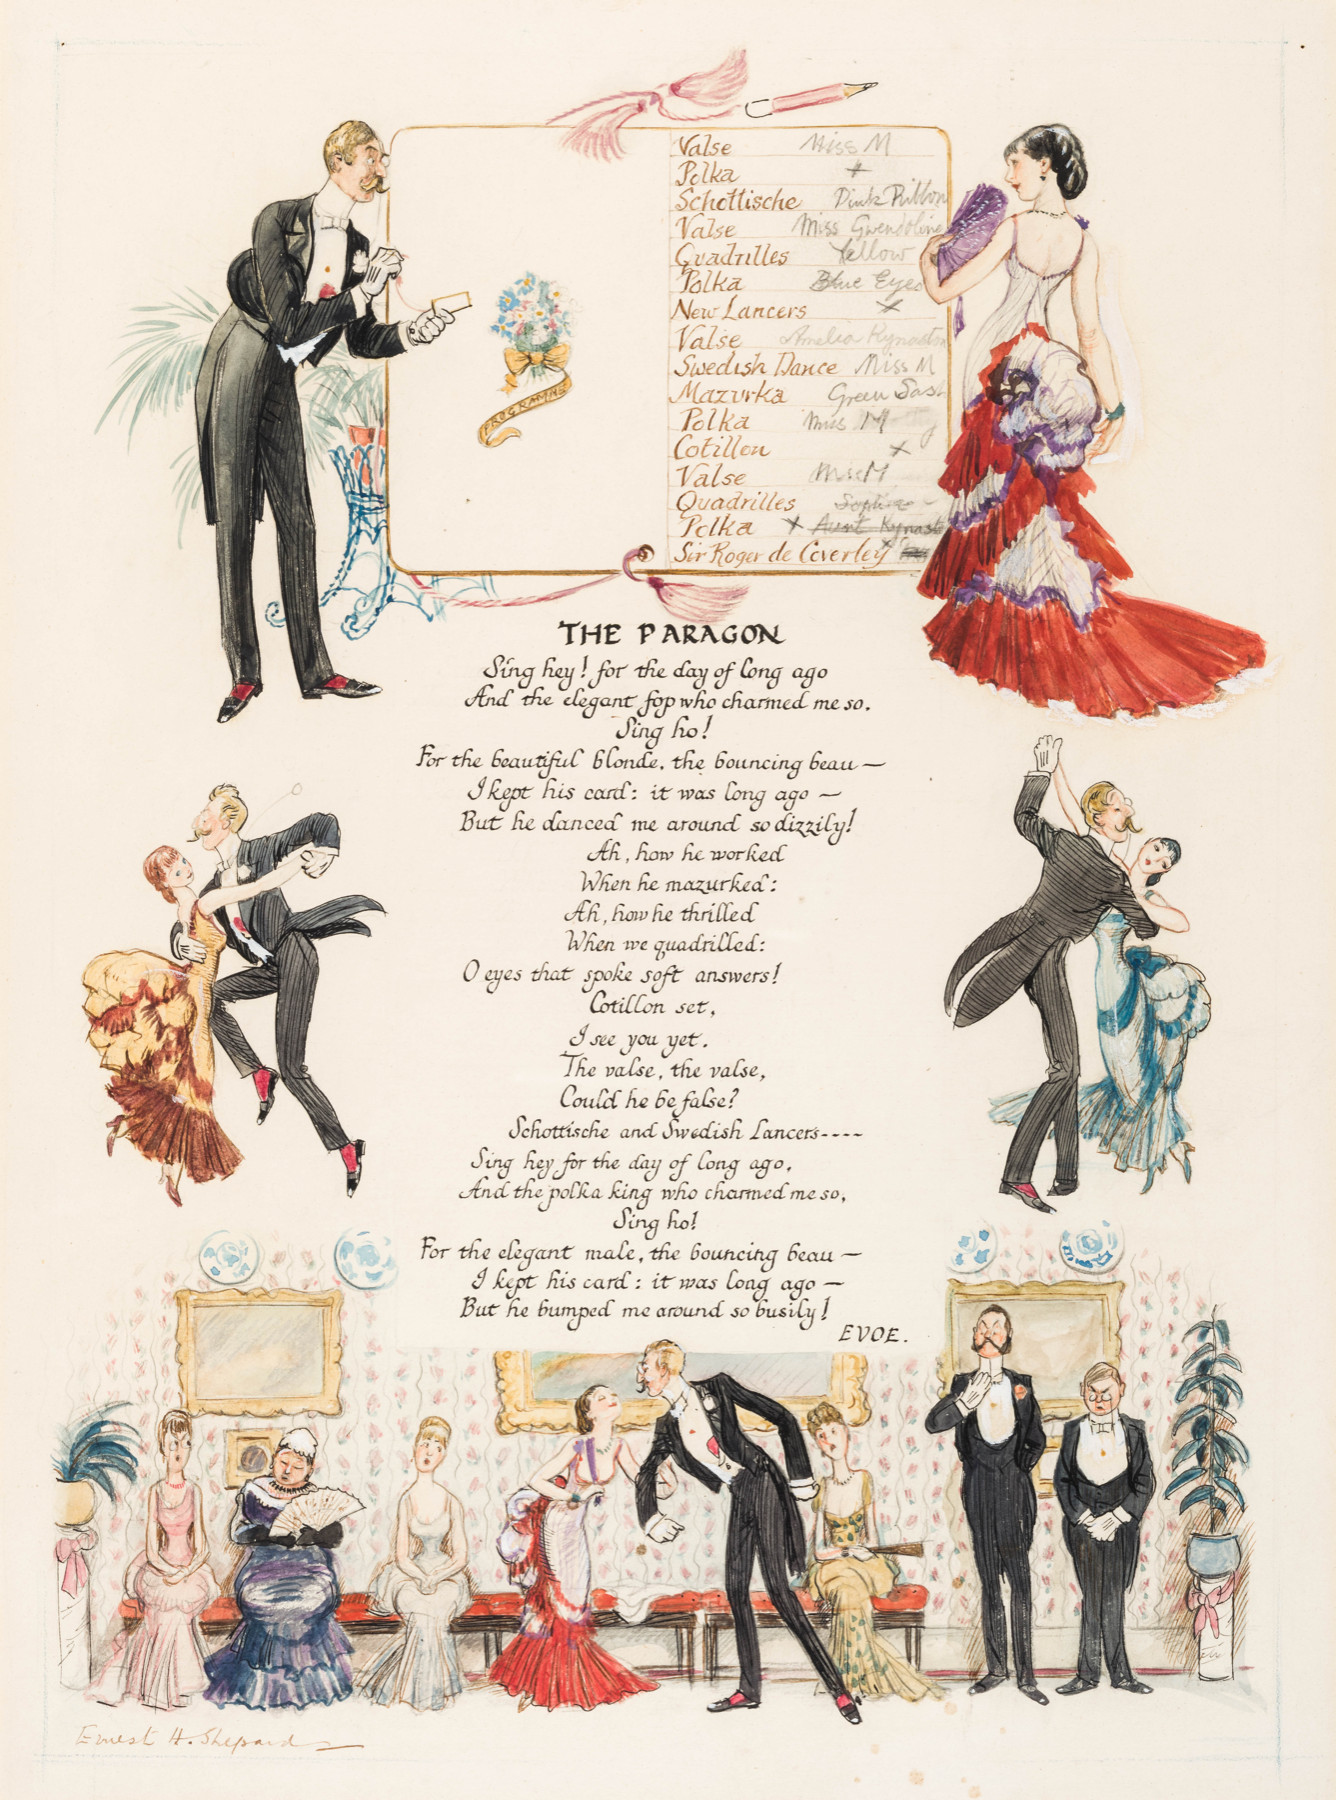 Valse Miss M
Polka x
Schottische Pink Ribbon
Valse Miss Gwendoline
Quadrilles Yellow
Polka Blue Eyes
New Lancers x
Valse Amelia Kynaston
Swedish Dance Miss M
Mazurka Green Sash
Polka Miss M
Cotillon x
Valse Miss M
Quadrilles Sophia
Polka x Aunt Kynast
Sir Roger de Coverley
PROGRAMME
THE PARAGON
Sing hey! for the day of long ago
And the elegant fop who charmed me so.
Sing ho!
For the beautiful blonde, the bouncing beau —
I kept his card: it was long ago —
But he danced me around so dizzily!
Ah, how he worked
When he mazurked:
Ah, how he thrilled
When we quadrilled:
O eyes that spoke soft answers!
Cotillon set,
I see you yet.
The valse, the valse,
Could he be false?
Schottische and Swedish Lancers----
Sing hey for the day of long ago,
And the polka king who charmed me so,
Sing ho!
For the elegant male, the bouncing beau —
I kept his card: it was long ago —
But he bumped me around so busily!
EVOE.
Ernest H. Shepard